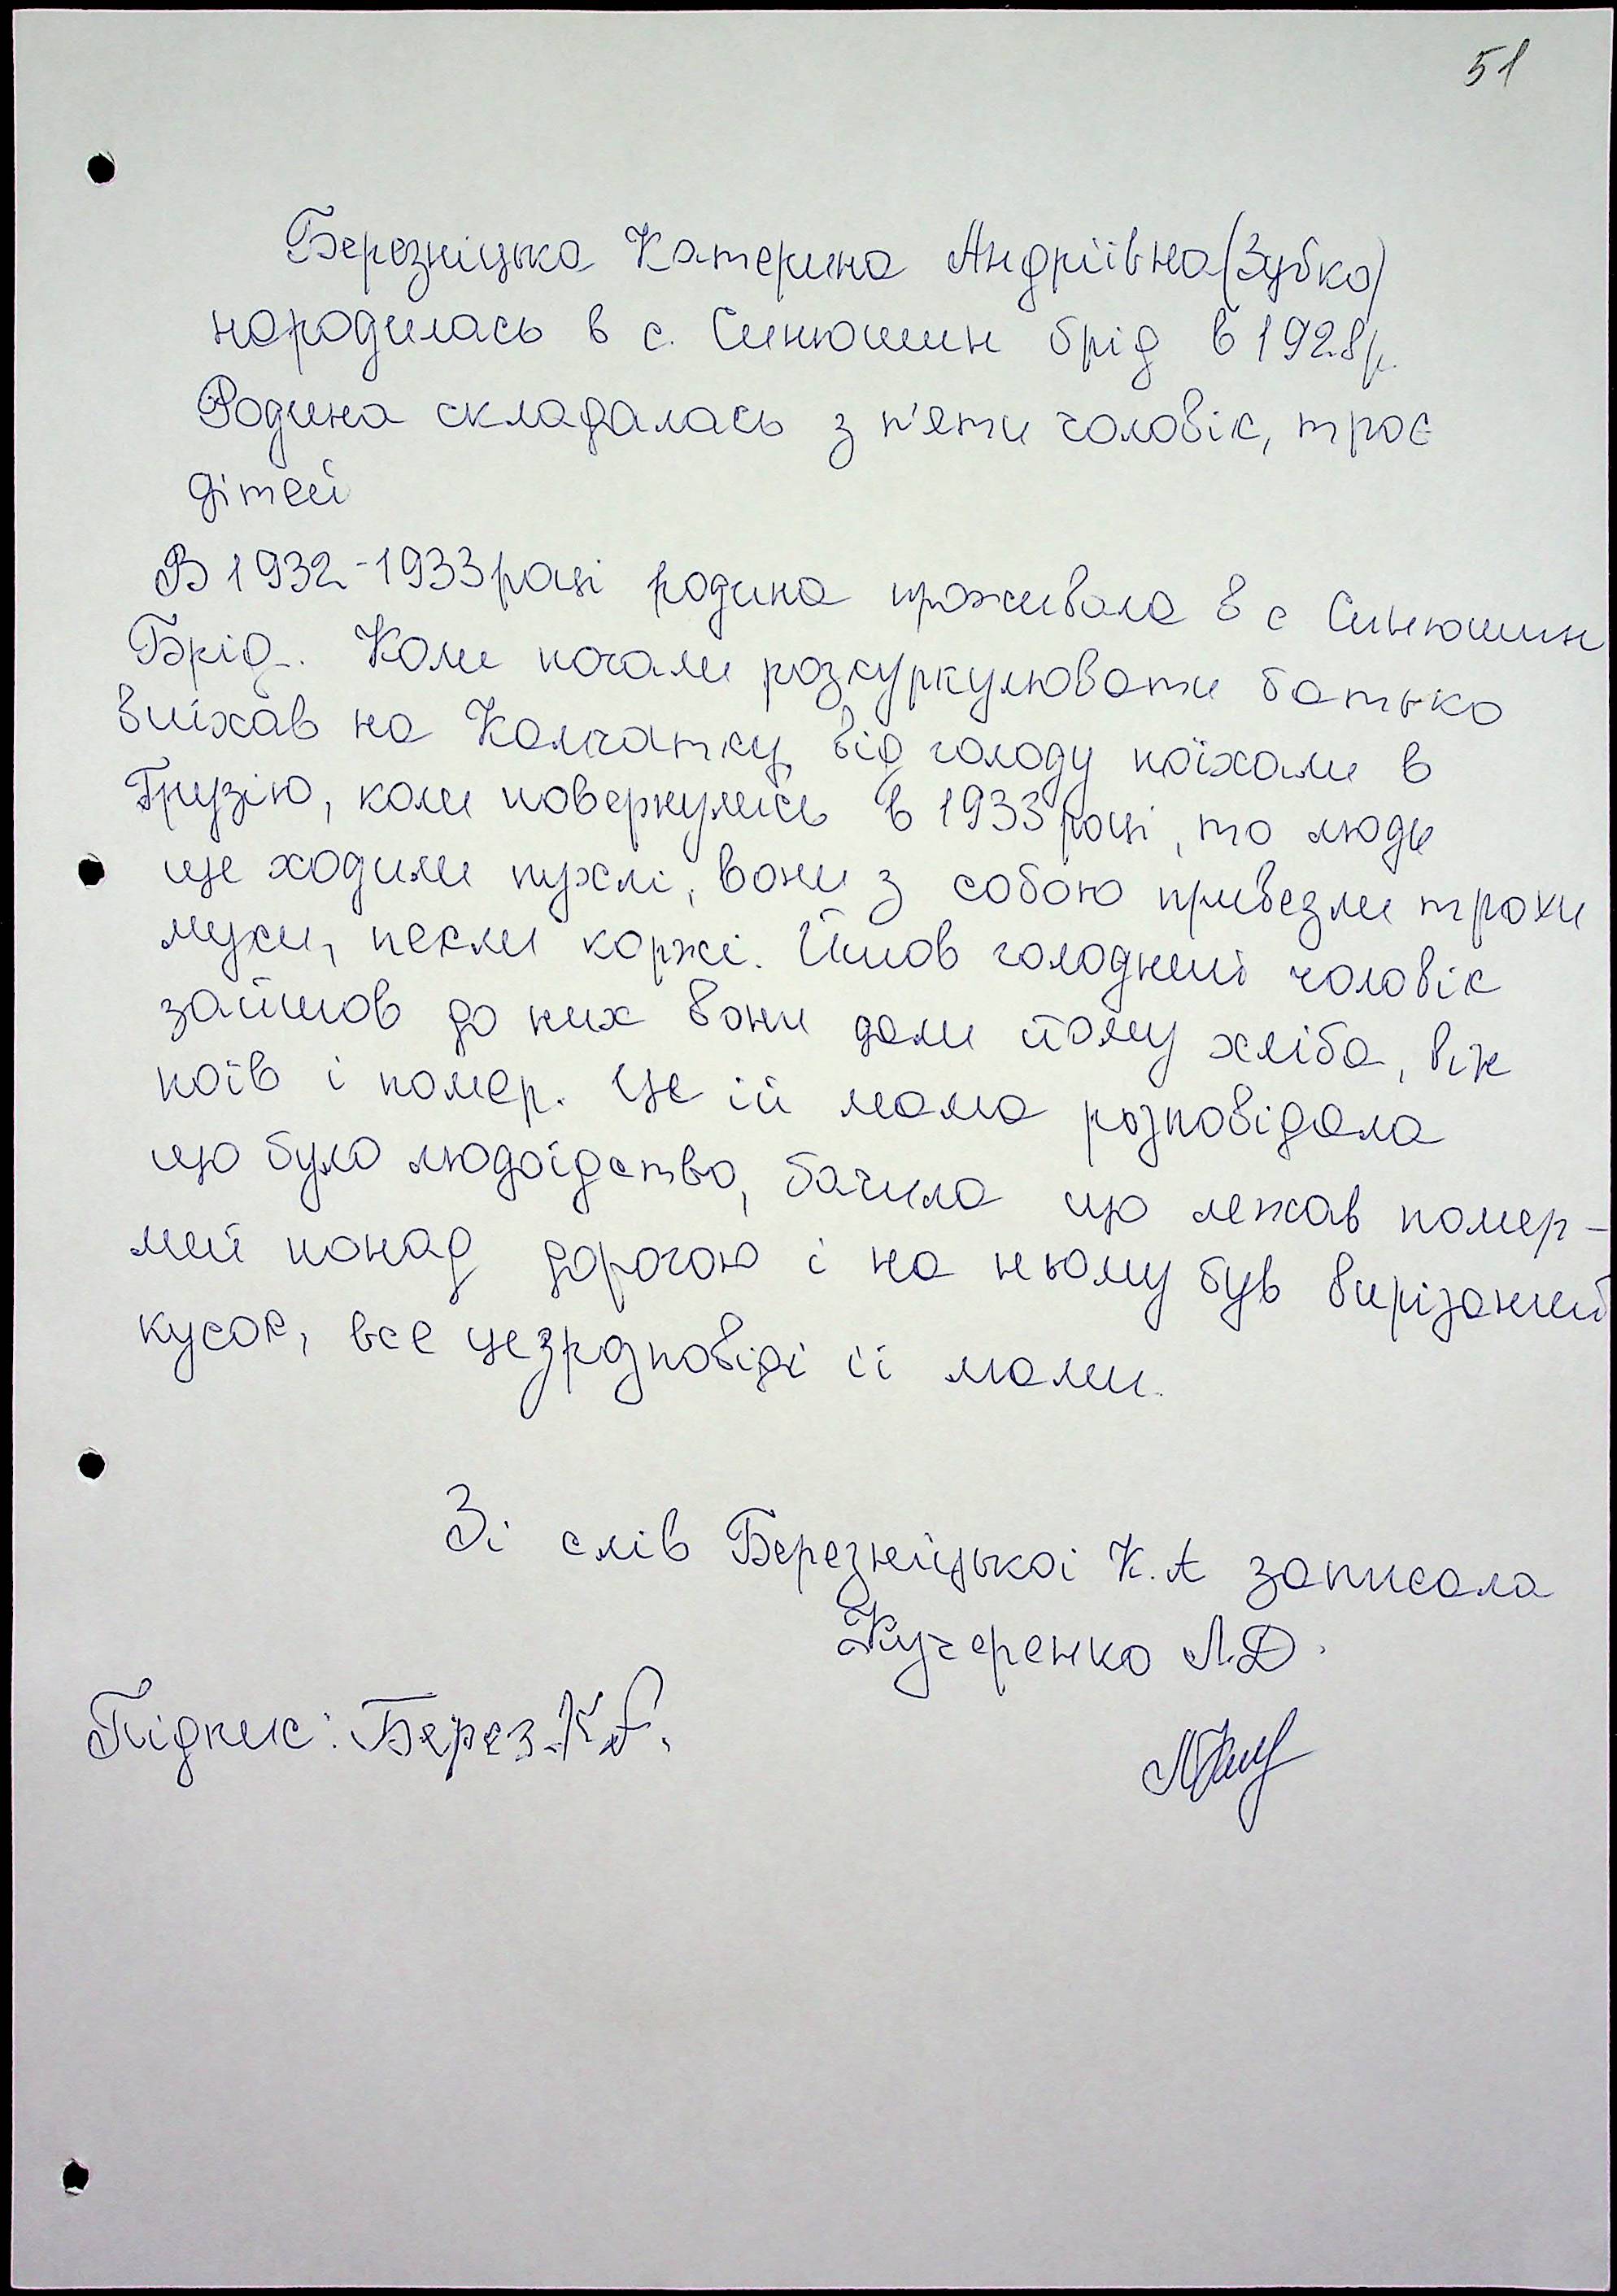 51
Березніцька Катерина Андріївна (Зубко)
народилась в с. Синюшин брід в 1928р.
Родина складалась з п'яти чоловік, троє
дітей
В 1932-1933 році родина проживала в с Синюшин
Брід. Коли почали розкуркулювати батько
виїхав на Камчатку від голоду поїхали в
Грузію, коли повернулись в 1933 році, то люди
ще ходили пухлі, вони з собою привезли трохи
муки, пекли коржі. Йшов голодний чоловік
зайшов до них вони дали йому хліба, він
поїв і помер. Це ій мама розповідала
що було людоїдство, бачила що лежав помер-
ший понад дорогою і на ньому був вирізаний
кусок, все це з розповіді її мами.
Зі слів Березніцької К.А записала
Кучеренко Л.Д.
Підпис: Берез. К.А.